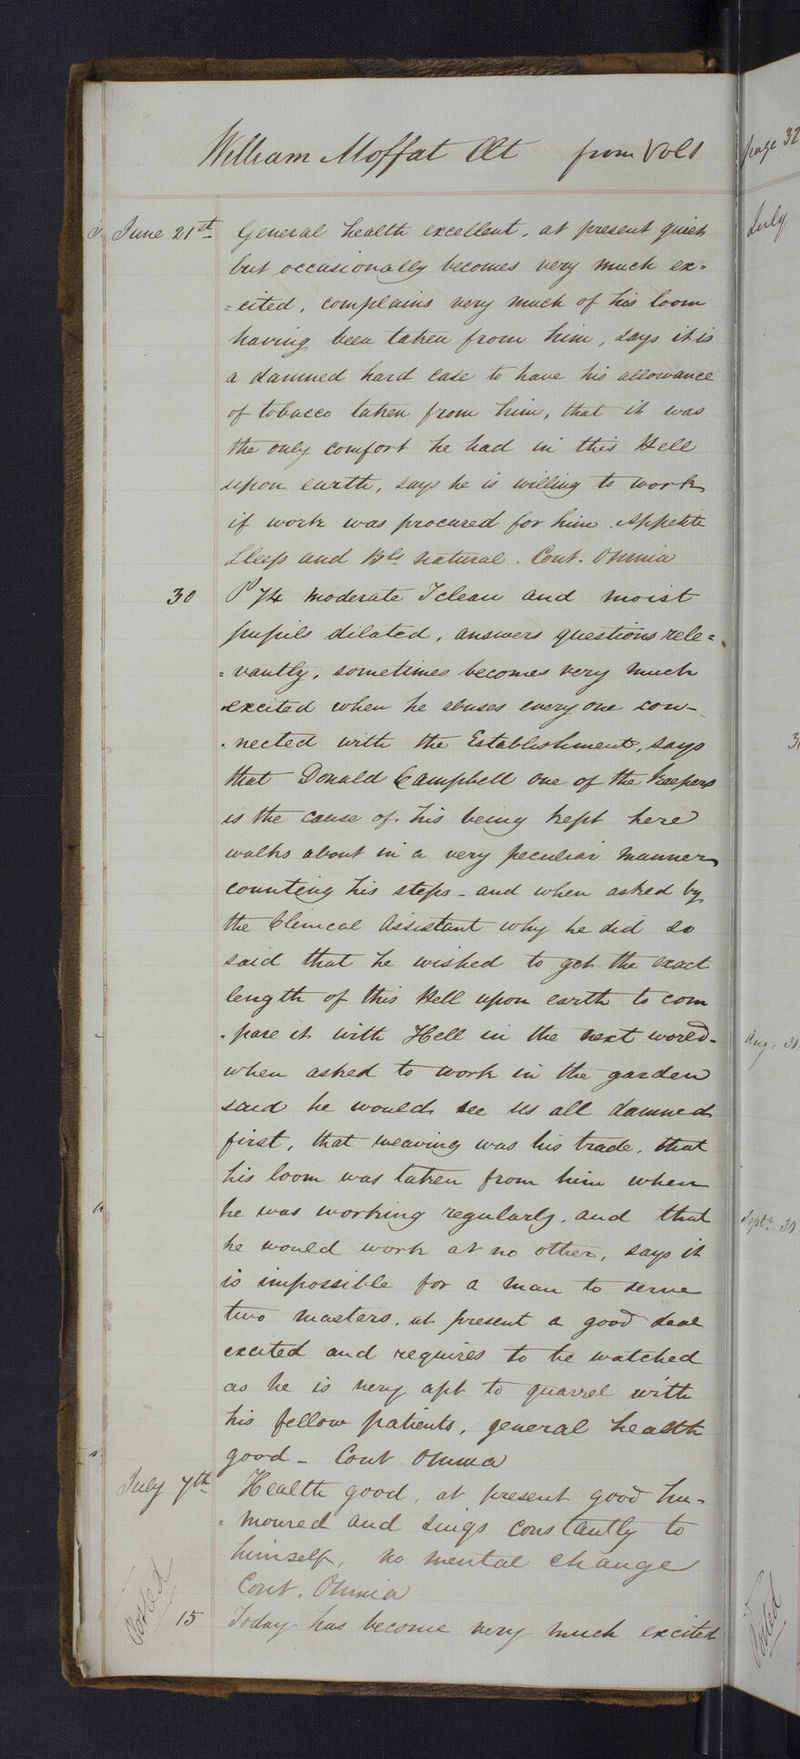 William Moffat Æt from Vol 1
June 21st General health excellent, at present quiet
but occasionally becomes very much ex=
=cited, complains very much of his loom
having been taken from him, says it is
a damned hard case to have his allowance
of tobacco taken from him, that it was
the only comfort he had in this Hell
upon earth, says he is willing to work
if work was procured for him. Appetite
Sleep and Bls natural. Cont. Omnia
30 P 74 moderate T clean and moist
pupils dilated, answers questions rele=
=vantly, sometimes becomes very much
excited when he abuses every one con-
-nected with the Establishment, says
that Donald Campbell one of the Keepers
is the cause of his being kept here
walks about in a very peculiar manner
counting his steps - and when asked by
the Clinical Assistant why he did so
said that he wished to get the exact
length of this Hell upon earth to com
-pare it with Hell in the next world-
when asked to work in the garden
said he would see us all damned
first, that weaving was his trade, that
his loom was taken from him when
he was working regularly, and that
he would work at no other, says it
is impossible for a man to serve
two masters, at present a good deal
excited and requires to be watched
as he is very apt to quarrel with
his fellow patients, general health
good - Cont Omnia
July 7th Health good, at present good hu-
=moured and sings constantly to
himself, no mental change
Cont. Omnia
Posted
15 Today has become very much excited
page 32
July
3
Aug. 31
Septr 30
Posted